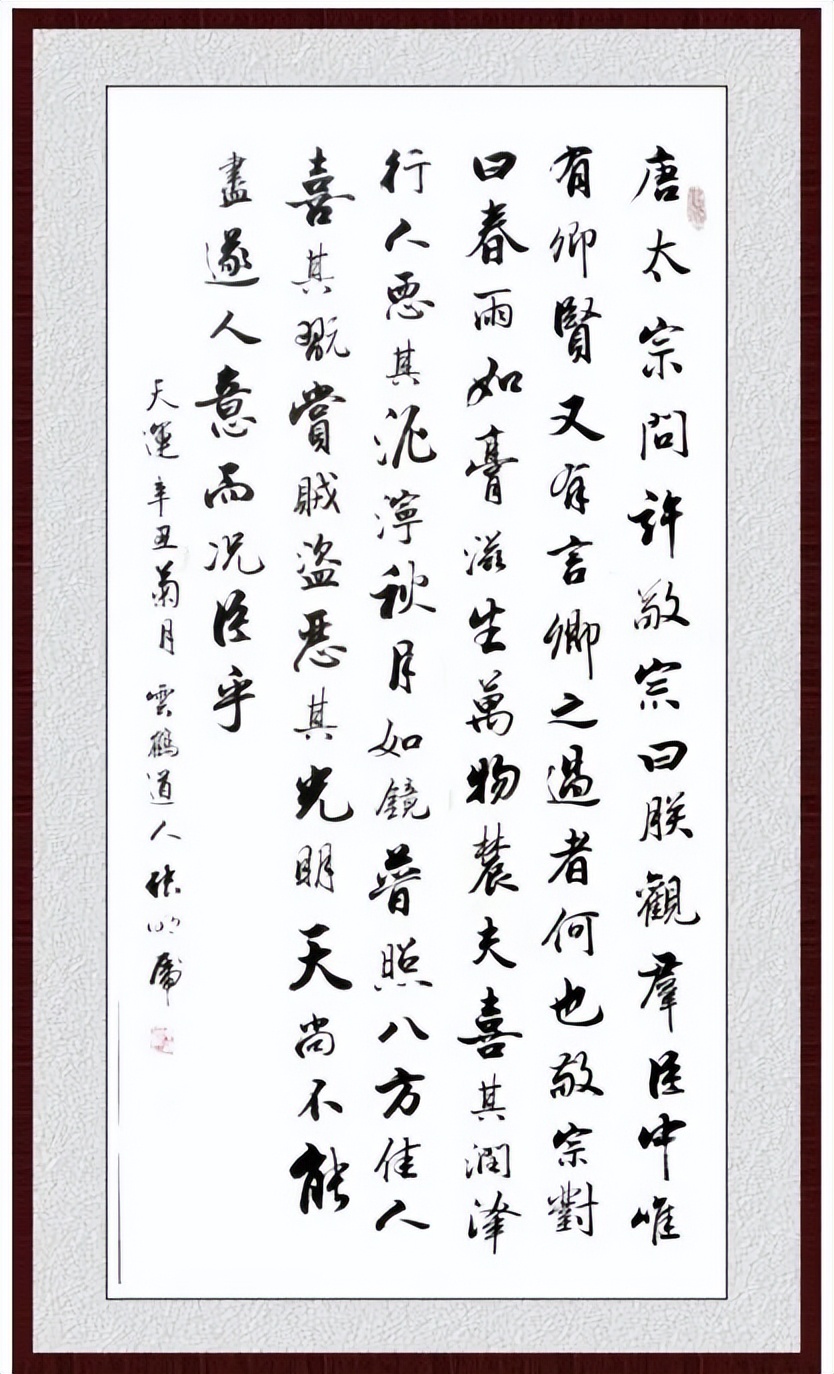 唐太宗問許敬宗曰朕觀羣臣中唯
有卿賢又有言卿之過者何也敬宗對
曰春雨如膏滋生萬物農夫喜其潤澤
行人惡其泥濘秋月如鏡普照八方佳人
喜其翫賞賊盜惡其光明天尚不能
盡遂人意而況臣乎
天運辛丑菊月 雲鶴道人張